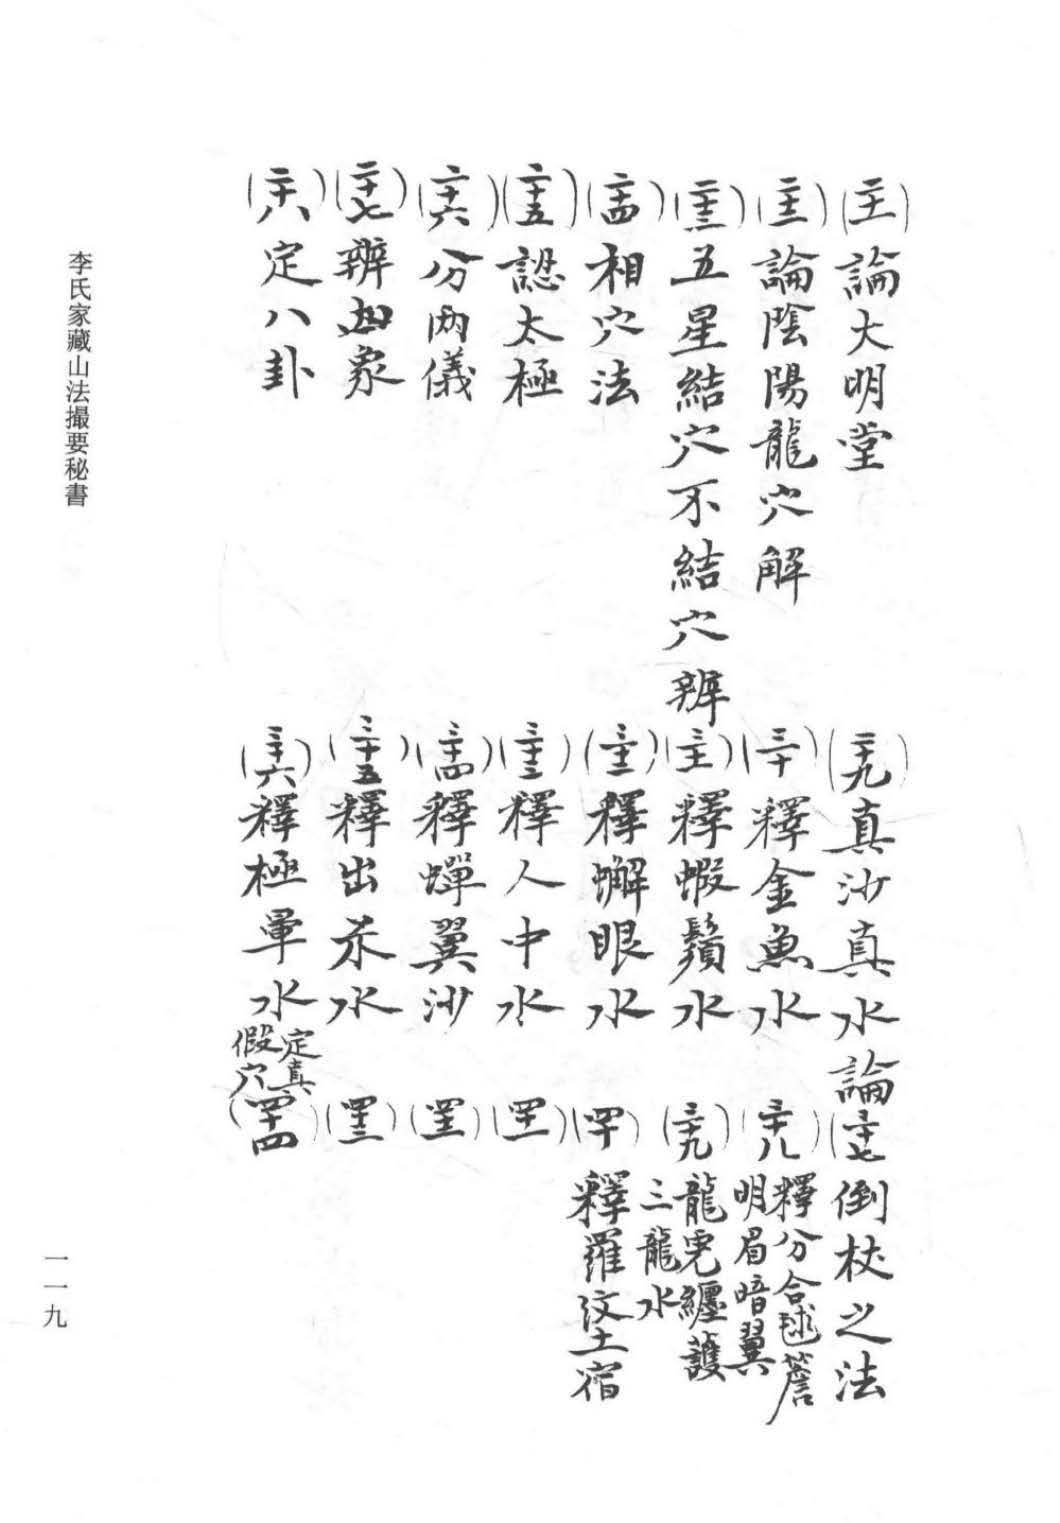 (二十一)論大明堂
(二十二)論陰陽龍穴解
(二十三)五星結穴不結穴辨
(二十四)相穴法
(二十五)認太極
(二十六)分兩儀
(二十七)辨四象
(二十八)定八卦
(二十九)真沙真水論
(三十)釋金魚水
(三十一)釋蝦鬚水
(三十二)釋蠏眼水
(三十三)釋人中水
(三十四)釋蟬翼沙
(三十五)釋出水
(三十六)釋極暈水定真假穴
(三十七)倒杖之法
(三十八)釋分合毬簷明眉暗翼
(三十九)龍虎纏護三龍水
(四十)釋羅紋土宿
(四十一)
(四十二)
(四十三)
(四十四)
李氏家藏山法撮要秘書
一一九